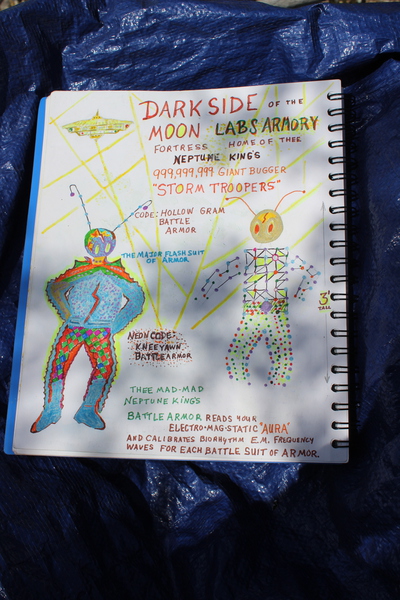 DARK SIDE OF THE
MOON LABS ARMORY
FORTRESS HOME OF THEE
NEPTUNE KING'S
999,999,999 GIANT BUGGER
"STORM TROOPERS"
CODE: HOLLOW GRAM
BATTLE
ARMOR
THE MAJER FLASH SUIT
OF ARMOR
3'
TALL
NEON CODE:
KNEEYAWN
BATTLE ARMOR
THEE MAD-MAD
NEPTUNE KING'S
BATTLE ARMOR READS YOUR
ELECTRO-MAG-STATIC "AURA"
AND CALIBRATES BIORHYTHM E.M. FREQUENCY
WAVES FOR EACH BATTLE SUIT OF ARMOR.